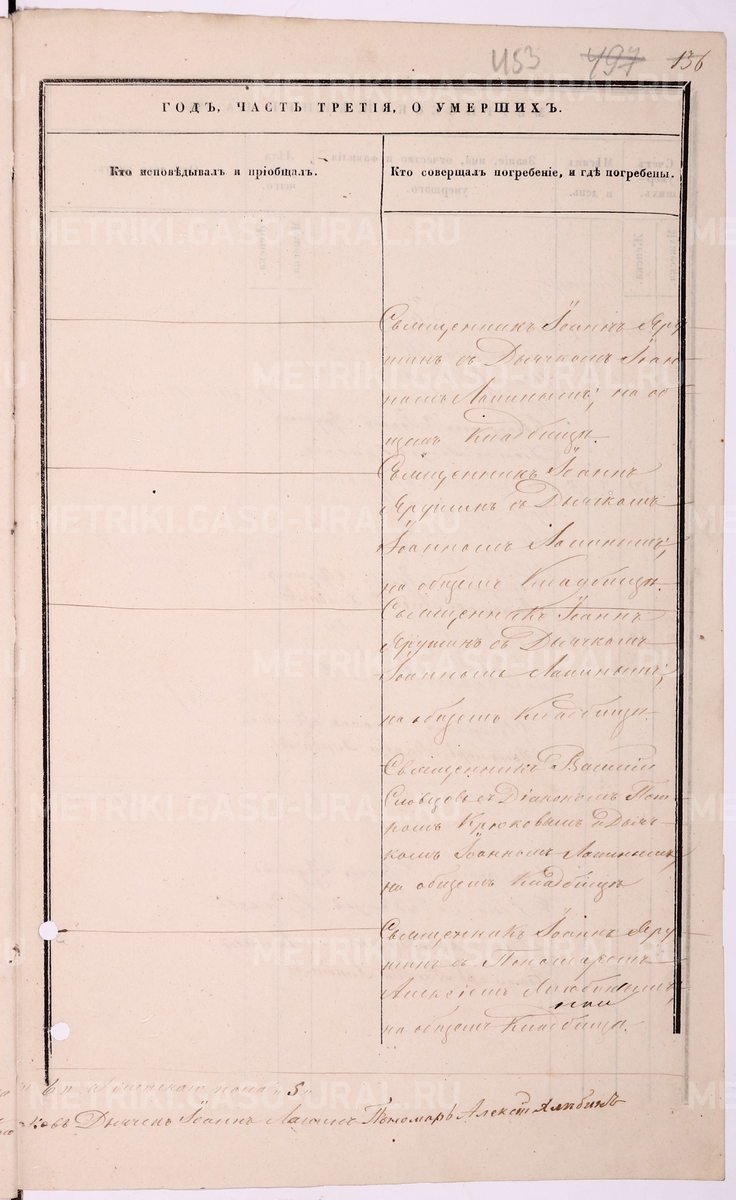 453 497 136
ГОДЪ, ЧАСТЬ ТРЕТІЯ, О УМЕРШИХЪ.
Кто исповѣдывалъ и пріобщалъ.
Кто совершалъ погребеніе, и гдѣ погребены.
Священникъ Іоаннъ Яру
шинъ съ Дьячкомъ Іоан
номъ Лапинымъ, на об
щемъ Кладбищѣ.
Священникъ Іоаннъ
Ярушинъ съ Дьячкомъ
Іоанномъ Лапинымъ,
на общемъ Кладбищѣ.
Священникъ Іоаннъ
Ярушинъ съ Дьячкомъ
Іоанномъ Лапинымъ,
на общемъ Кладбищѣ.
Священникъ Василій
Словцовъ съ Діакономъ Пет
ромъ Крюковымъ и Дьяч
комъ Іоанномъ Лапинымъ,
на общемъ Кладбищѣ
Священникъ Іоаннъ Яру
шинъ съ Пономаремъ
Алексіемъ
на общемъ Кладбищѣ.
6 пола 5
Дьячекъ Іоаннъ Лапинъ Пономарь Алексѣй
METRIKI.GASO-URAL.RU